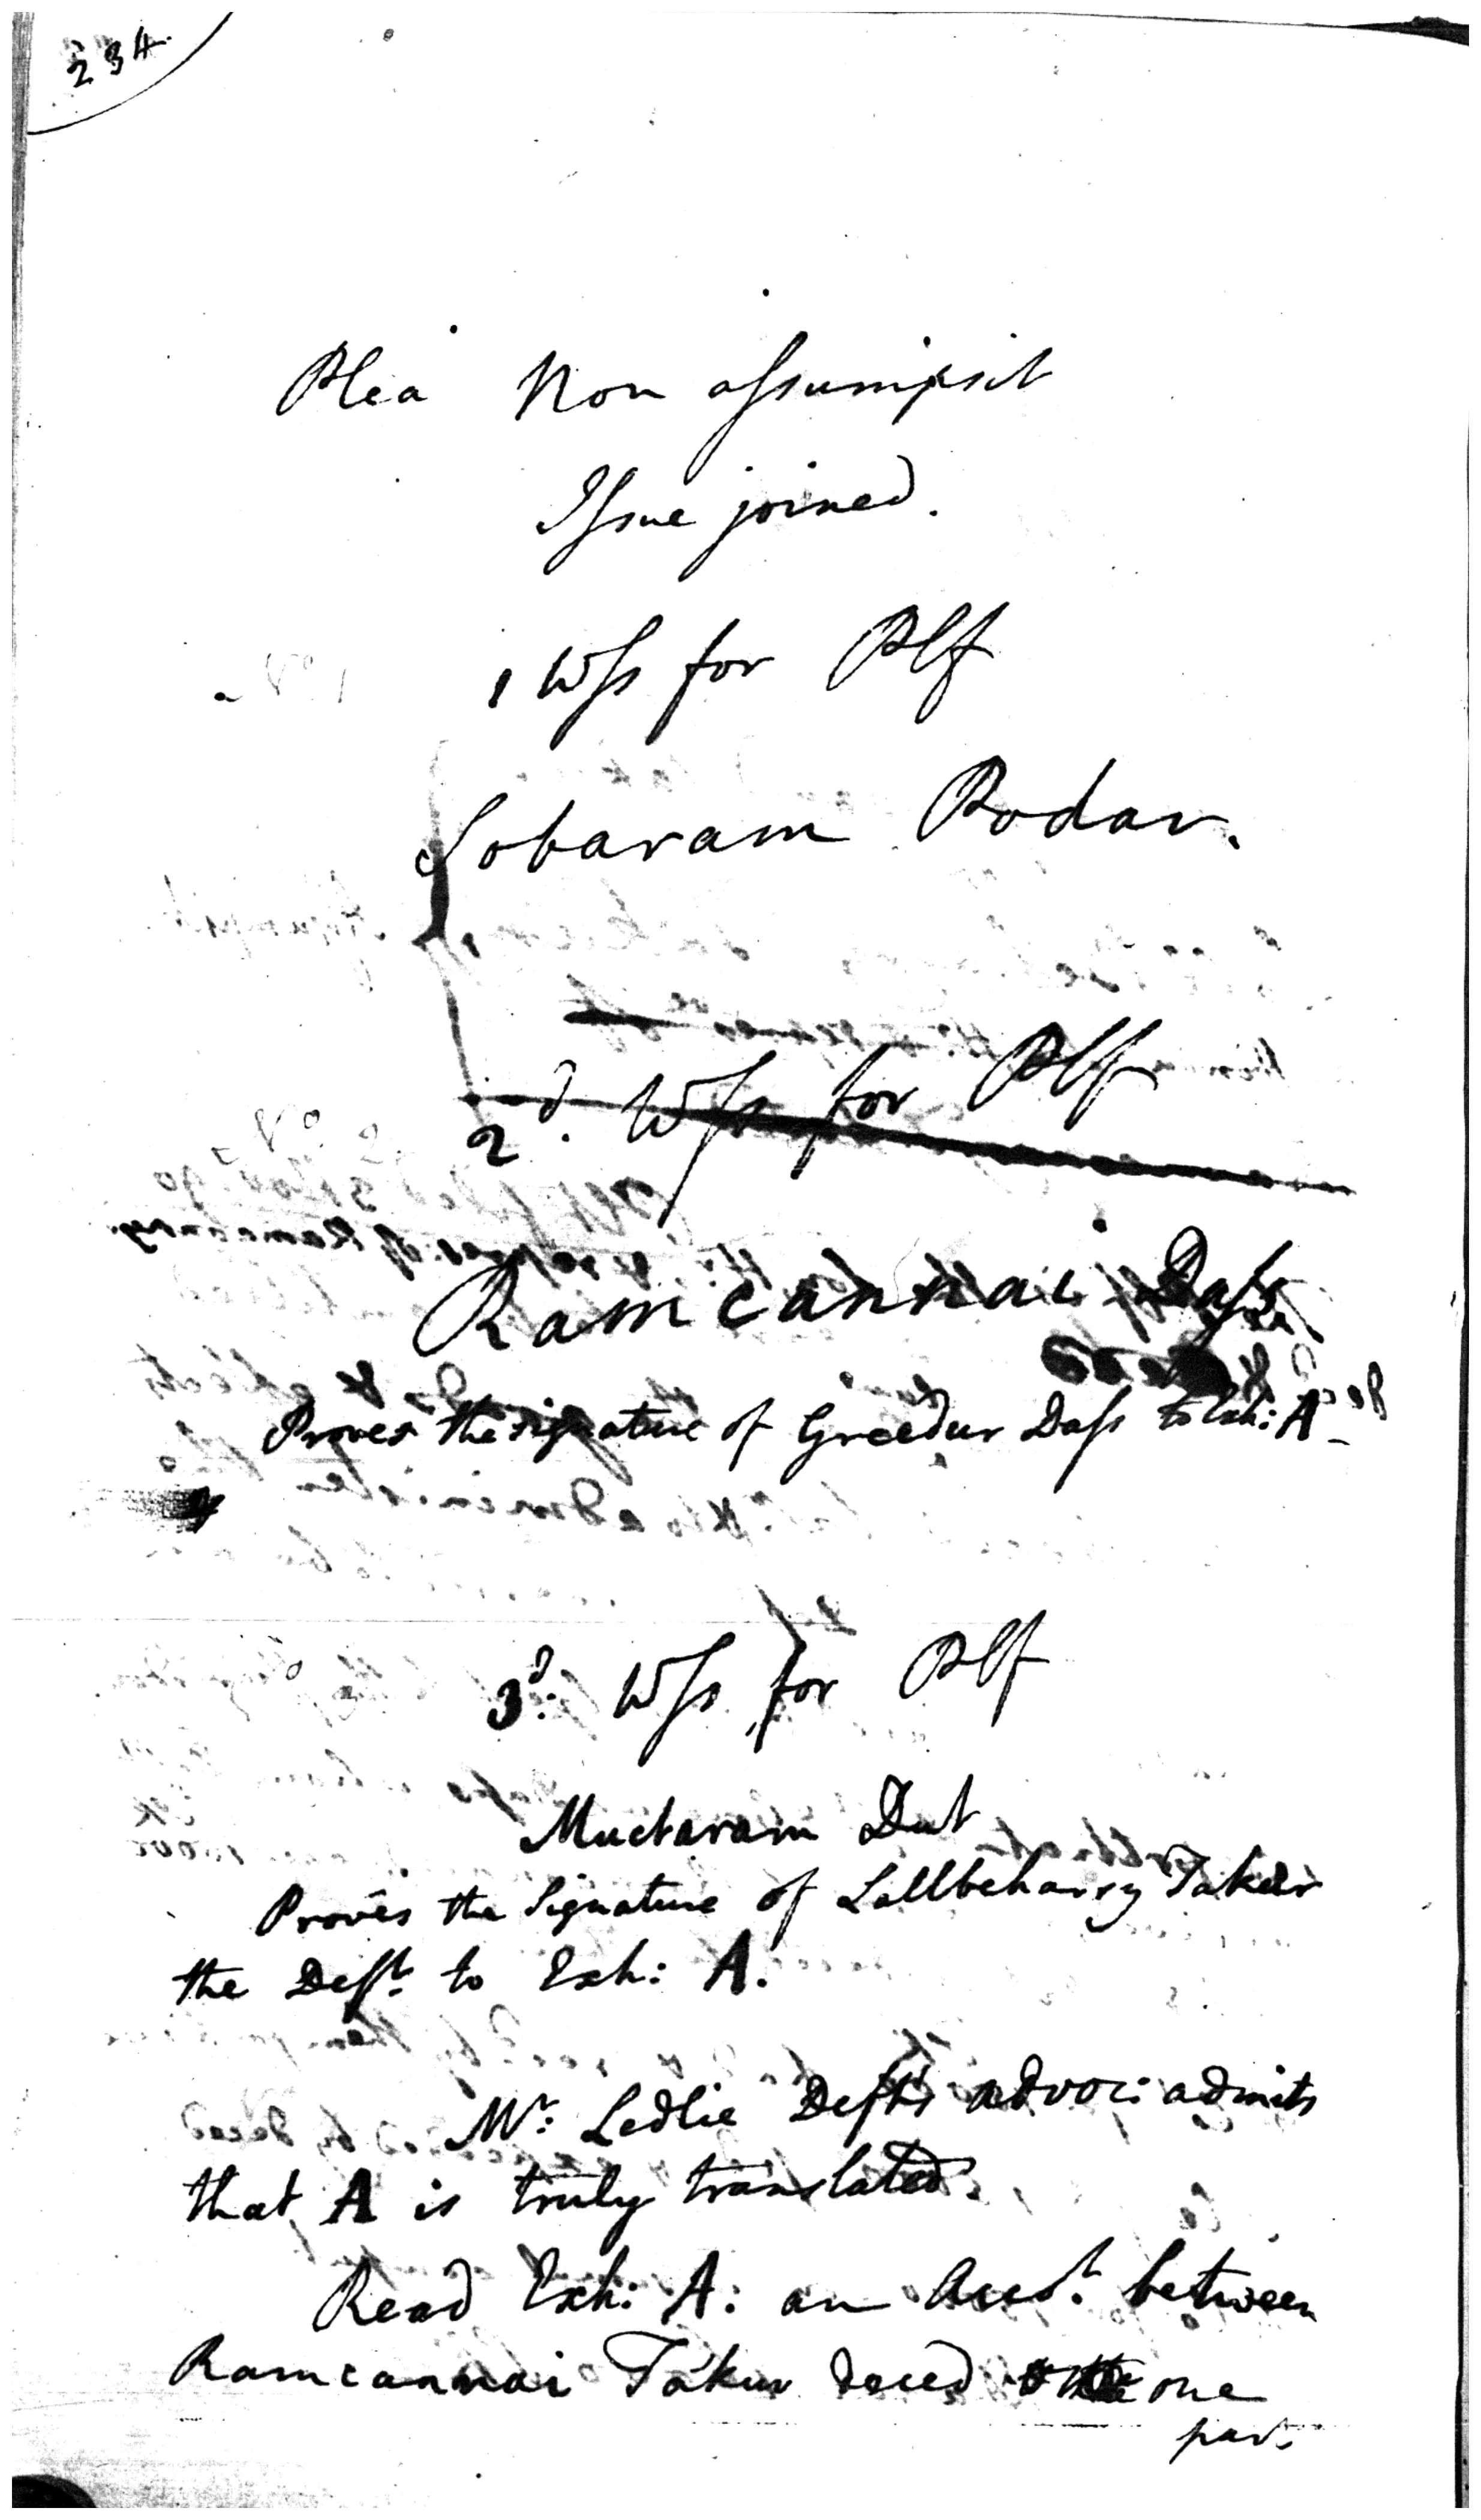 234
Plea Non assumpsit
Issue joined.
1 Wss for Plf
Sobaram Podar.
2d. Wss for Plf
Ramcannai Dass
Proves the signature of Greedur Dass to Exh: A -
3d. Wss for Plf
Muctaram Dut
Proves the Signature of Lollbeharry Takur
the Deft. to Exh: A.
Mr. Ledlie Deft's advoc: admits
that A is truly translated.
Read Exh: A: an Acct. between
Ramcannai Takur deced one
part